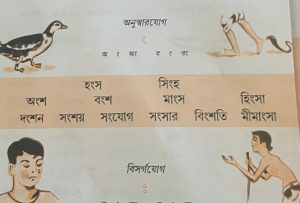 অনুস্বারযোগ
ং
অ ং অং ব ং বং
হংস সিংহ
অংশ বংশ মাংস হিংসা
দংশন সংশয় সংযোগ সংসার বিংশতি মীমাংসা
বিসর্গযোগ
ঃ